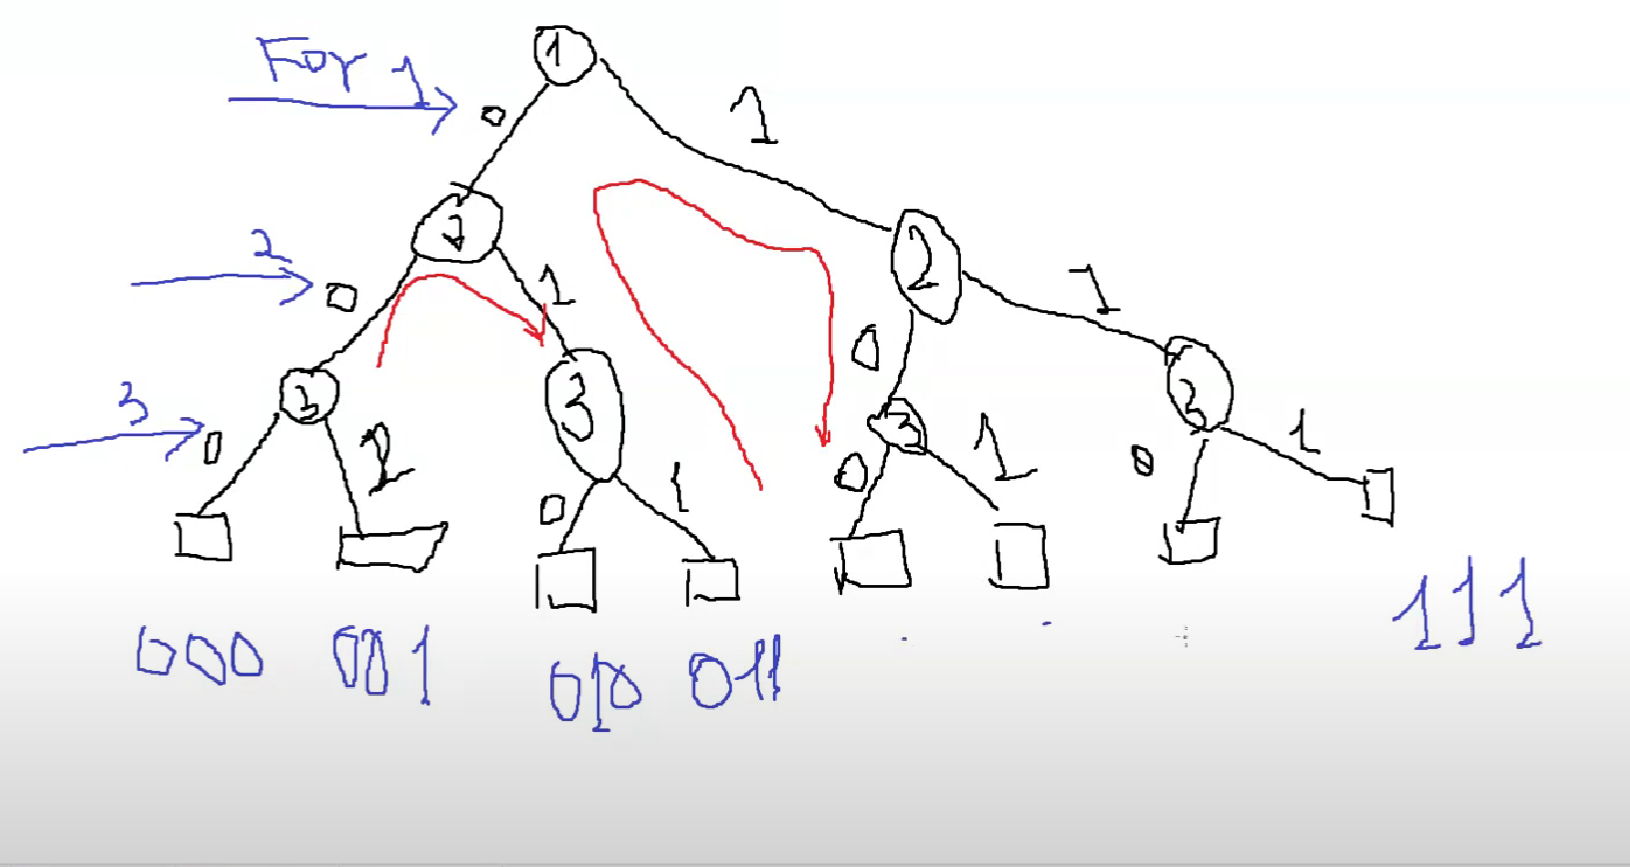 For 1
1
0
1
2
2
2
0
1
0
1
3
3
3
3
0
1
0
1
0
1
0
1
000 001 010 011 111